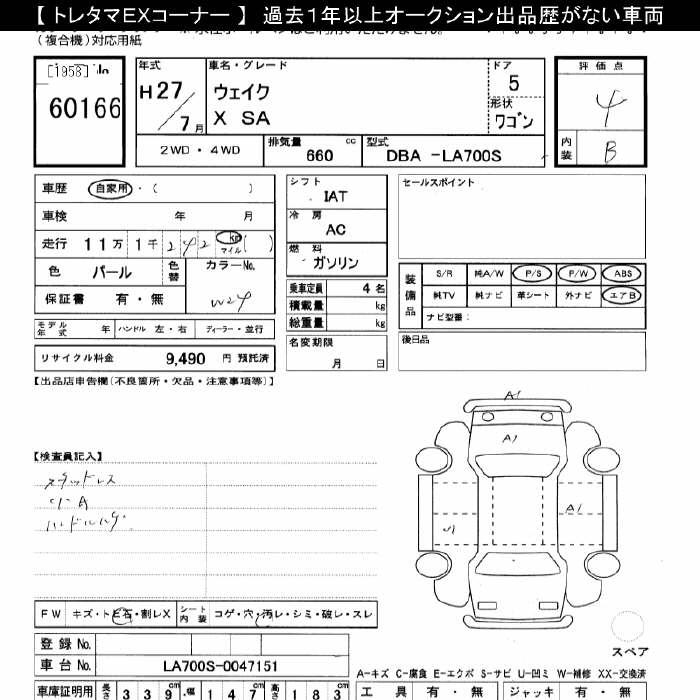 【 トレタマEXコーナー 】 過去1年以上オークション出品歴がない車両
(複合機)対応用紙
[1958] No
60166
年式
H27/7月
車名・グレード
ウェイク
X SA
ドア
5
形状
ワゴン
評価点
4
内装
B
2WD・4WD
排気量
660 cc
型式
DBA -LA700S
車歴 自家用・( )
車検 年 月
走行 11万 1千 242 km マイル ( )
色 パール
色替
カラーNo.
W24
保証書 有・無
モデル年式 年 ハンドル 左・右 ディーラー・並行
リサイクル料金 9,490 円 預託済
シフト
IAT
冷房
AC
燃料
ガソリン
乗車定員 4 名
積載量 kg
総重量 kg
名変期限
月 日
セールスポイント
装備品
S/R 純A/W P/S P/W ABS
純TV 純ナビ 革シート 外ナビ エアB
ナビ型番:
後日品
【出品店申告欄(不良箇所・欠品・注意事項等)】
A1
A1
A1
U1
【検査員記入】
スタッドレス
ハンドルハゲ
FW キズ・トビ石・割レX シート内装 コゲ・穴・汚レ・シミ・破レ・スレ
スペア
登録 No.
車台 No. LA700S-0047151
A-キズ C-腐食 E-エクボ S-サビ U-凹ミ W-補修 XX-交換済
車庫証明用 長さ 339 cm 幅 147 cm 高さ 183 cm
工具 有・無 ジャッキ 有・無